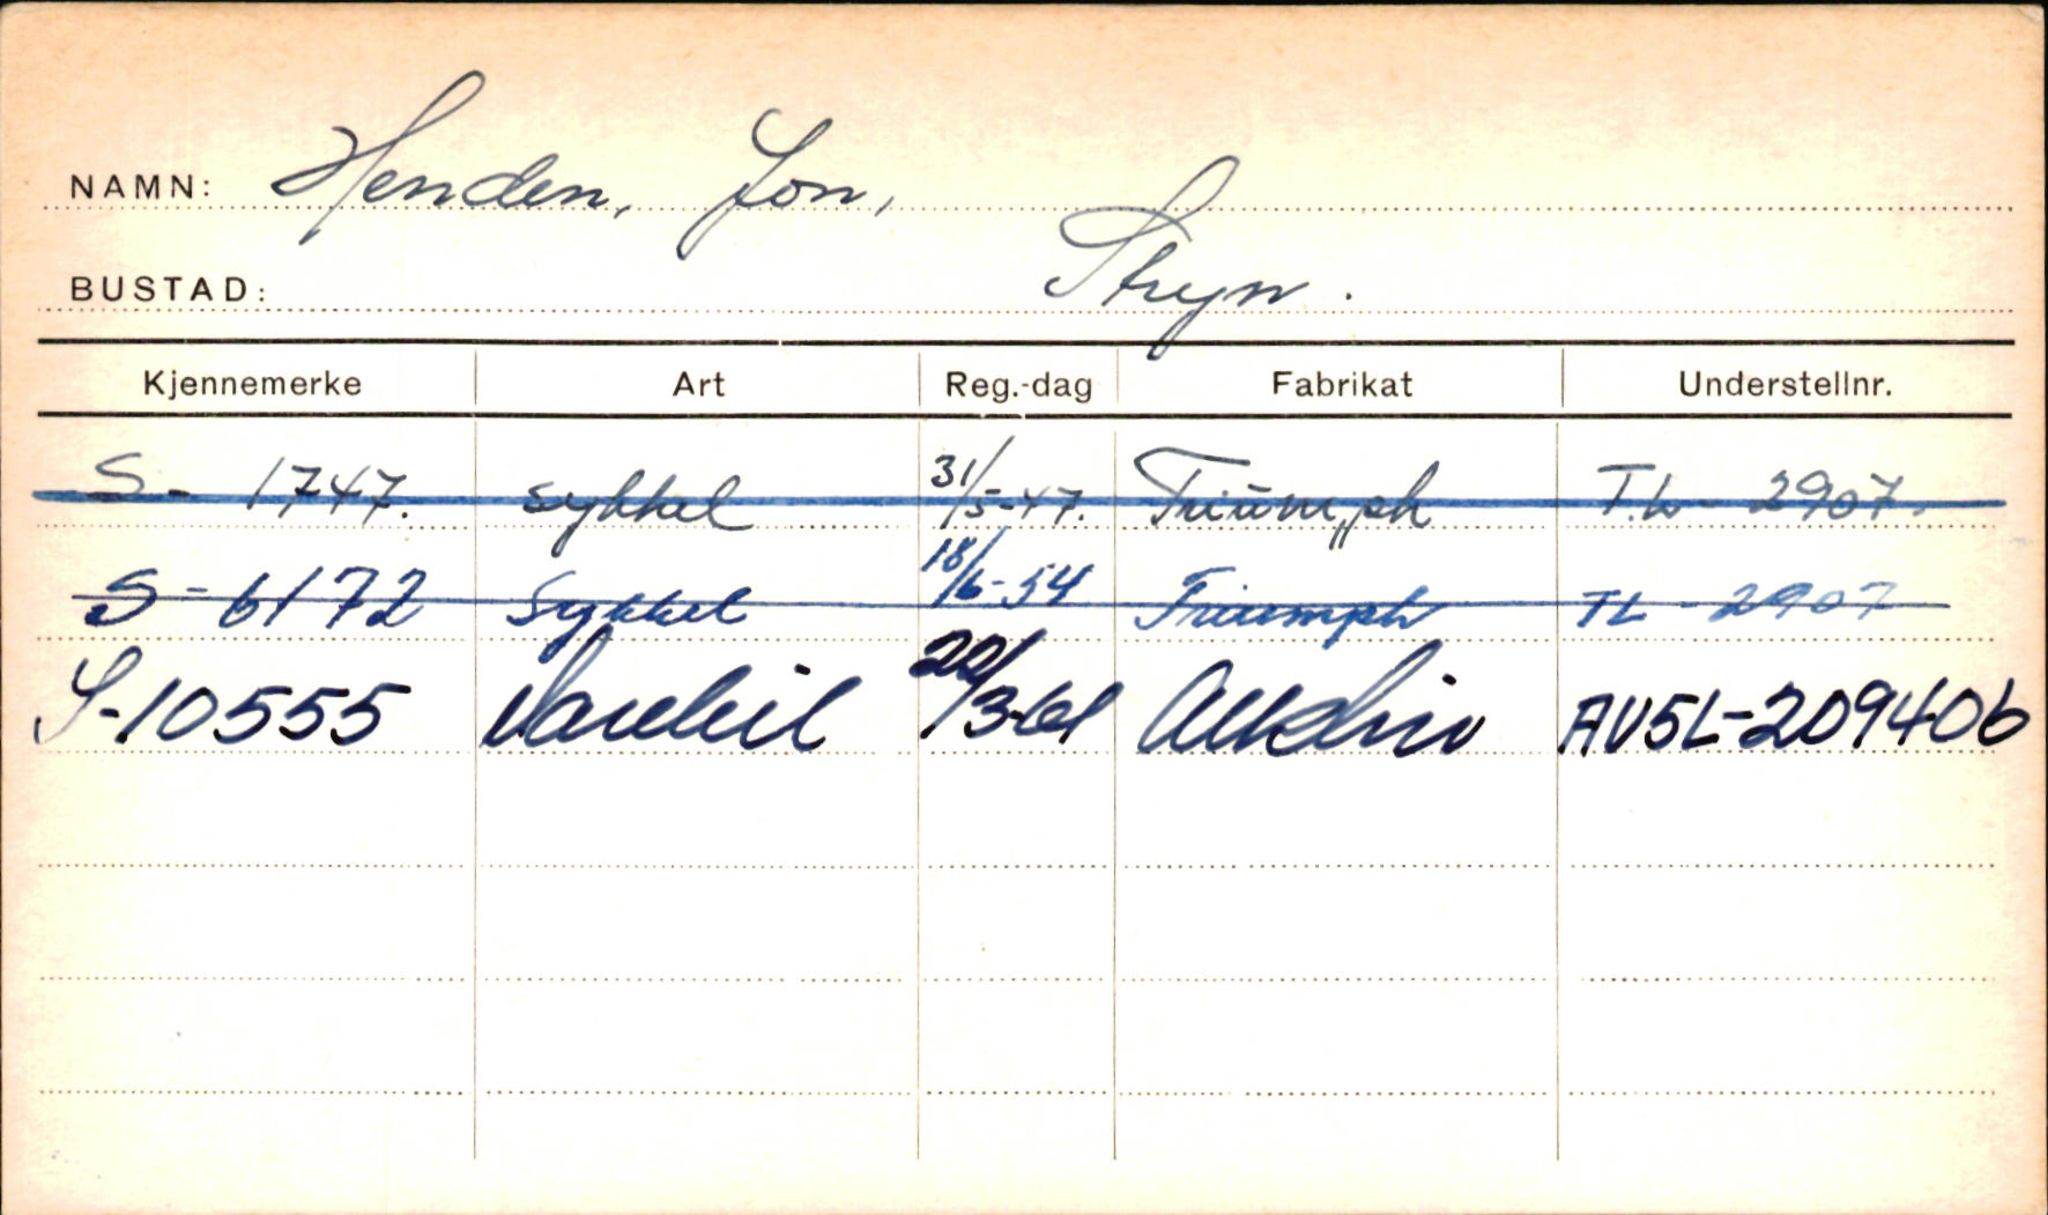 NAMN: Henden, Jon,
BUSTAD: Stryn.
Kjennemerke Art Reg.-dag Fabrikat Understellnr.
S- 1747. sykkel 31/5-47. Triumph T.L- 2907.
S-6172 Sykkel 18/6-54 Triumph TL-2907
S-10555 Varebil 20/3-61 Austin AV5L-209406